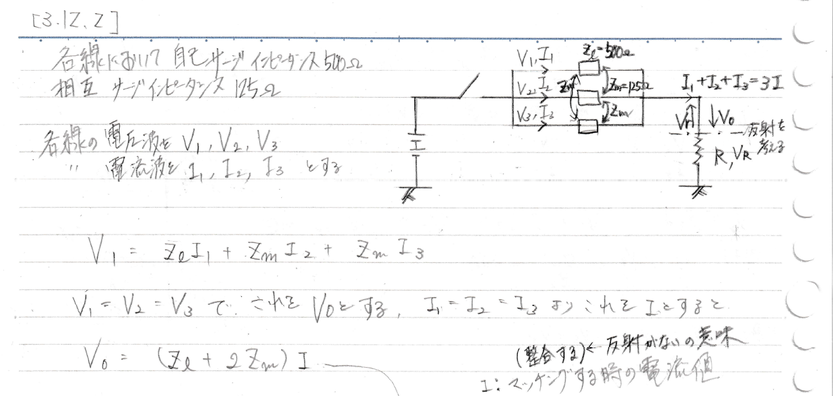 [3.12.2]
各線において 自己サージインピーダンス 500Ω
相互 サージインピータンス 125Ω
各線の 電圧波を V1, V2, V3
〃 電流波を I1, I2, I3 とする
V1, I1
V2, I2
V3, I3
Zl=500Ω
Zm
Zm=125Ω
Zm
I1+I2+I3=3I
V0
反射を
考える
R, VR
V1 = ZlI1 + ZmI2 + ZmI3
V1 = V2 = V3 で これを V0とする, I1=I2=I3 よりこれを Iとすると
V0 = (Zl + 2Zm) I
(整合する)← 反射がないの意味
I:マッチングする時の電流値